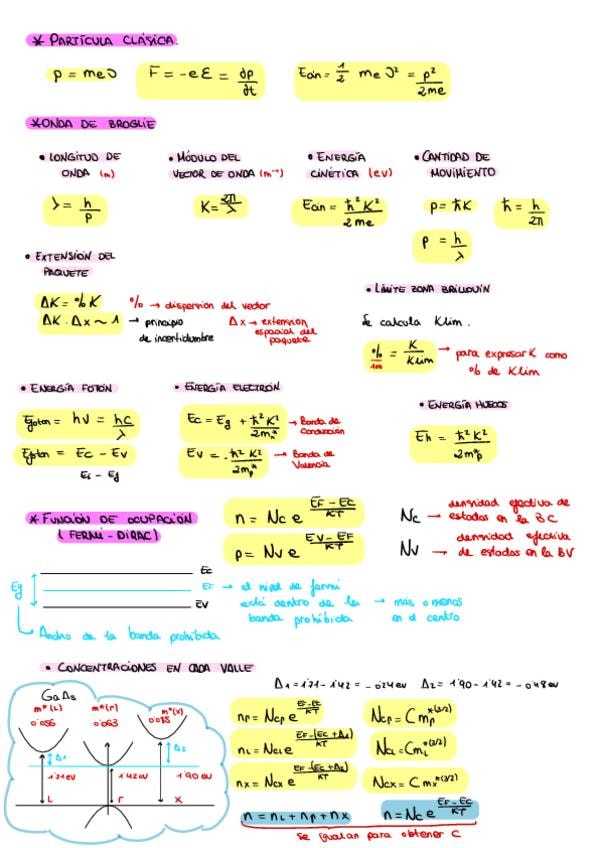 * PARTÍCULA CLÁSICA.
p = me υ   F = -e ε = ∂p/∂t   Ecin = 1/2 me υ² = p²/2me
* ONDA DE BROGLIE
• LONGITUD DE ONDA (m)
λ = h/p
• MÓDULO DEL VECTOR DE ONDA (m⁻¹)
K = 2π/λ
• ENERGÍA CINÉTICA (eV)
Ecin = ħ²K²/2me
• CANTIDAD DE MOVIMIENTO
p = ħK   ħ = h/2π
p = h/λ
• EXTENSIÓN DEL PAQUETE
ΔK = % K   % → dispersión del vector
ΔK · Δx ~ 1 → principio de incertidumbre   Δx → extensión espacial del paquete
• LÍMITE ZONA BRILLOUIN
Se calcula Klim.
%/100 = K/Klim → para expresar K como % de Klim
• ENERGÍA FOTÓN
Efoton = hν = hc/λ
Efoton = Ec - Ev
Ei - Eg
• ENERGÍA ELECTRÓN
Ec = Eg + ħ²K²/2mn* → Banda de Conducción
Ev = - ħ²K²/2mp* → Banda de Valencia
• ENERGÍA HUECOS
Eh = ħ²K²/2mp*
* FUNCIÓN DE OCUPACIÓN
(FERMI-DIRAC)
n = Nc e^(EF-EC/KT)
p = Nv e^(EV-EF/KT)
Nc → densidad efectiva de estados en la BC
Nv → densidad efectiva de estados en la BV
Ec
Eg   EF → el nivel de fermi está dentro de la banda prohibida → más o menos en el centro
Ev
Ancho de la banda prohibida
• CONCENTRACIONES EN CADA VALLE
Δ1 = 1'71 - 1'42 = -0'24 eV   Δ2 = 1'90 - 1'42 = -0'48 eV
GaAs
m*(L)   m*(Γ)   m*(X)
0'063
Δ1   Δ2
1'71 eV   1'42 eV   1'90 eV
L   Γ   X
nΓ = NcΓ e^(EF-EC/KT)   NcΓ = C mΓ*^(3/2)
nL = NcL e^(EF-(EC+Δ1)/KT)   NcL = C mL*^(3/2)
nx = Ncx e^(EF-(EC+Δ2)/KT)   Ncx = C mx*^(3/2)
n = nL + nΓ + nx   n = Nc e^(EF-EC/KT)
se igualan para obtener C